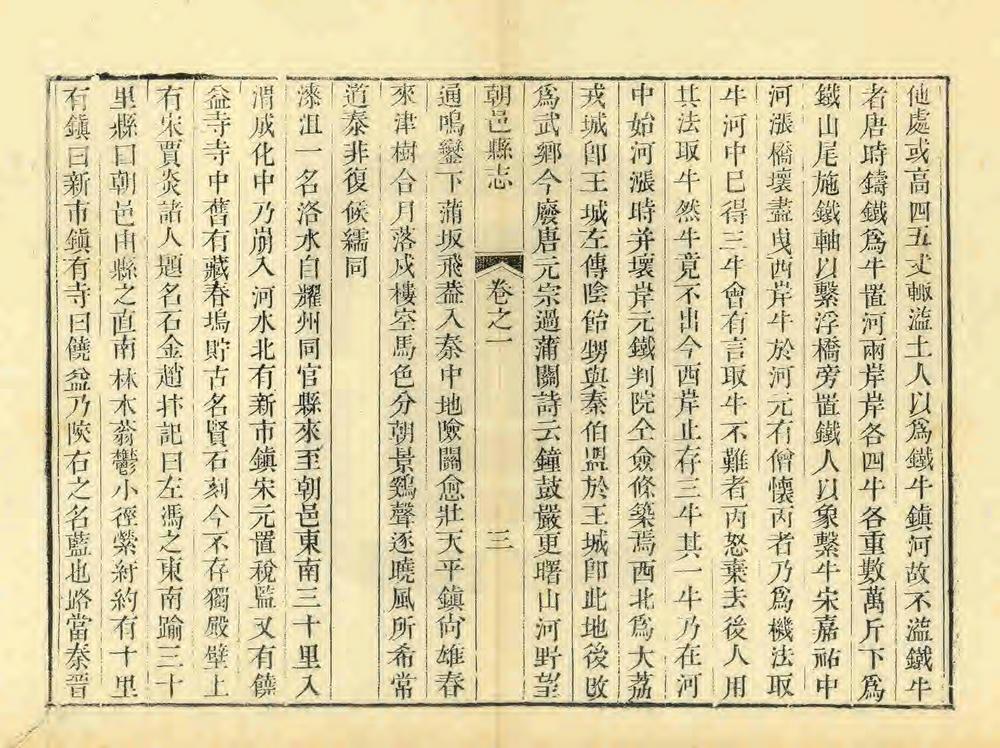 他處或高四五丈輙溢土人以爲鐵牛鎮河故不溢鐵牛
者唐時鑄鐵爲牛置河兩岸岸各四牛各重數萬斤下爲
鐵山尾施鐵軸以繫浮橋旁置鐵人以象繫牛宋嘉祐中
河漲橋壞盡曳西岸牛於河元有僧懷丙者乃爲機法取
牛河中巳得三牛會有言取牛不難者丙怒棄去後人用
其法取牛然牛竟不出今西岸止存三牛其一牛乃在河
中始河漲時并壞岸元鐵判院仝僉條築焉西北爲大荔
戎城卽王城左傳陰飴甥與秦伯盟於王城卽此地後改
爲武鄉今廢唐元宗過蒲關詩云鐘鼓嚴更曙山河野望
朝邑縣志 卷之一 三
通鳴鑾下蒲坂飛葢入秦中地險關愈壯天平鎮尙雄春
來津樹合月落戍樓空馬色分朝景鷄聲逐曉風所希常
道泰非復候繻同
漆沮一名洛水自耀州同官縣來至朝邑東南三十里入
渭成化中乃崩入河水北有新市鎮宋元置稅監又有饒
益寺寺中舊有藏春塢貯古名賢石刻今不存獨殿壁上
有宋賈炎諸人題名石金趙抃記曰左馮之東南踰三十
里縣曰朝邑由縣之直南林木蓊鬱小徑縈紆約有十里
有鎮曰新市鎮有寺曰饒益乃陝右之名藍也路當秦晉